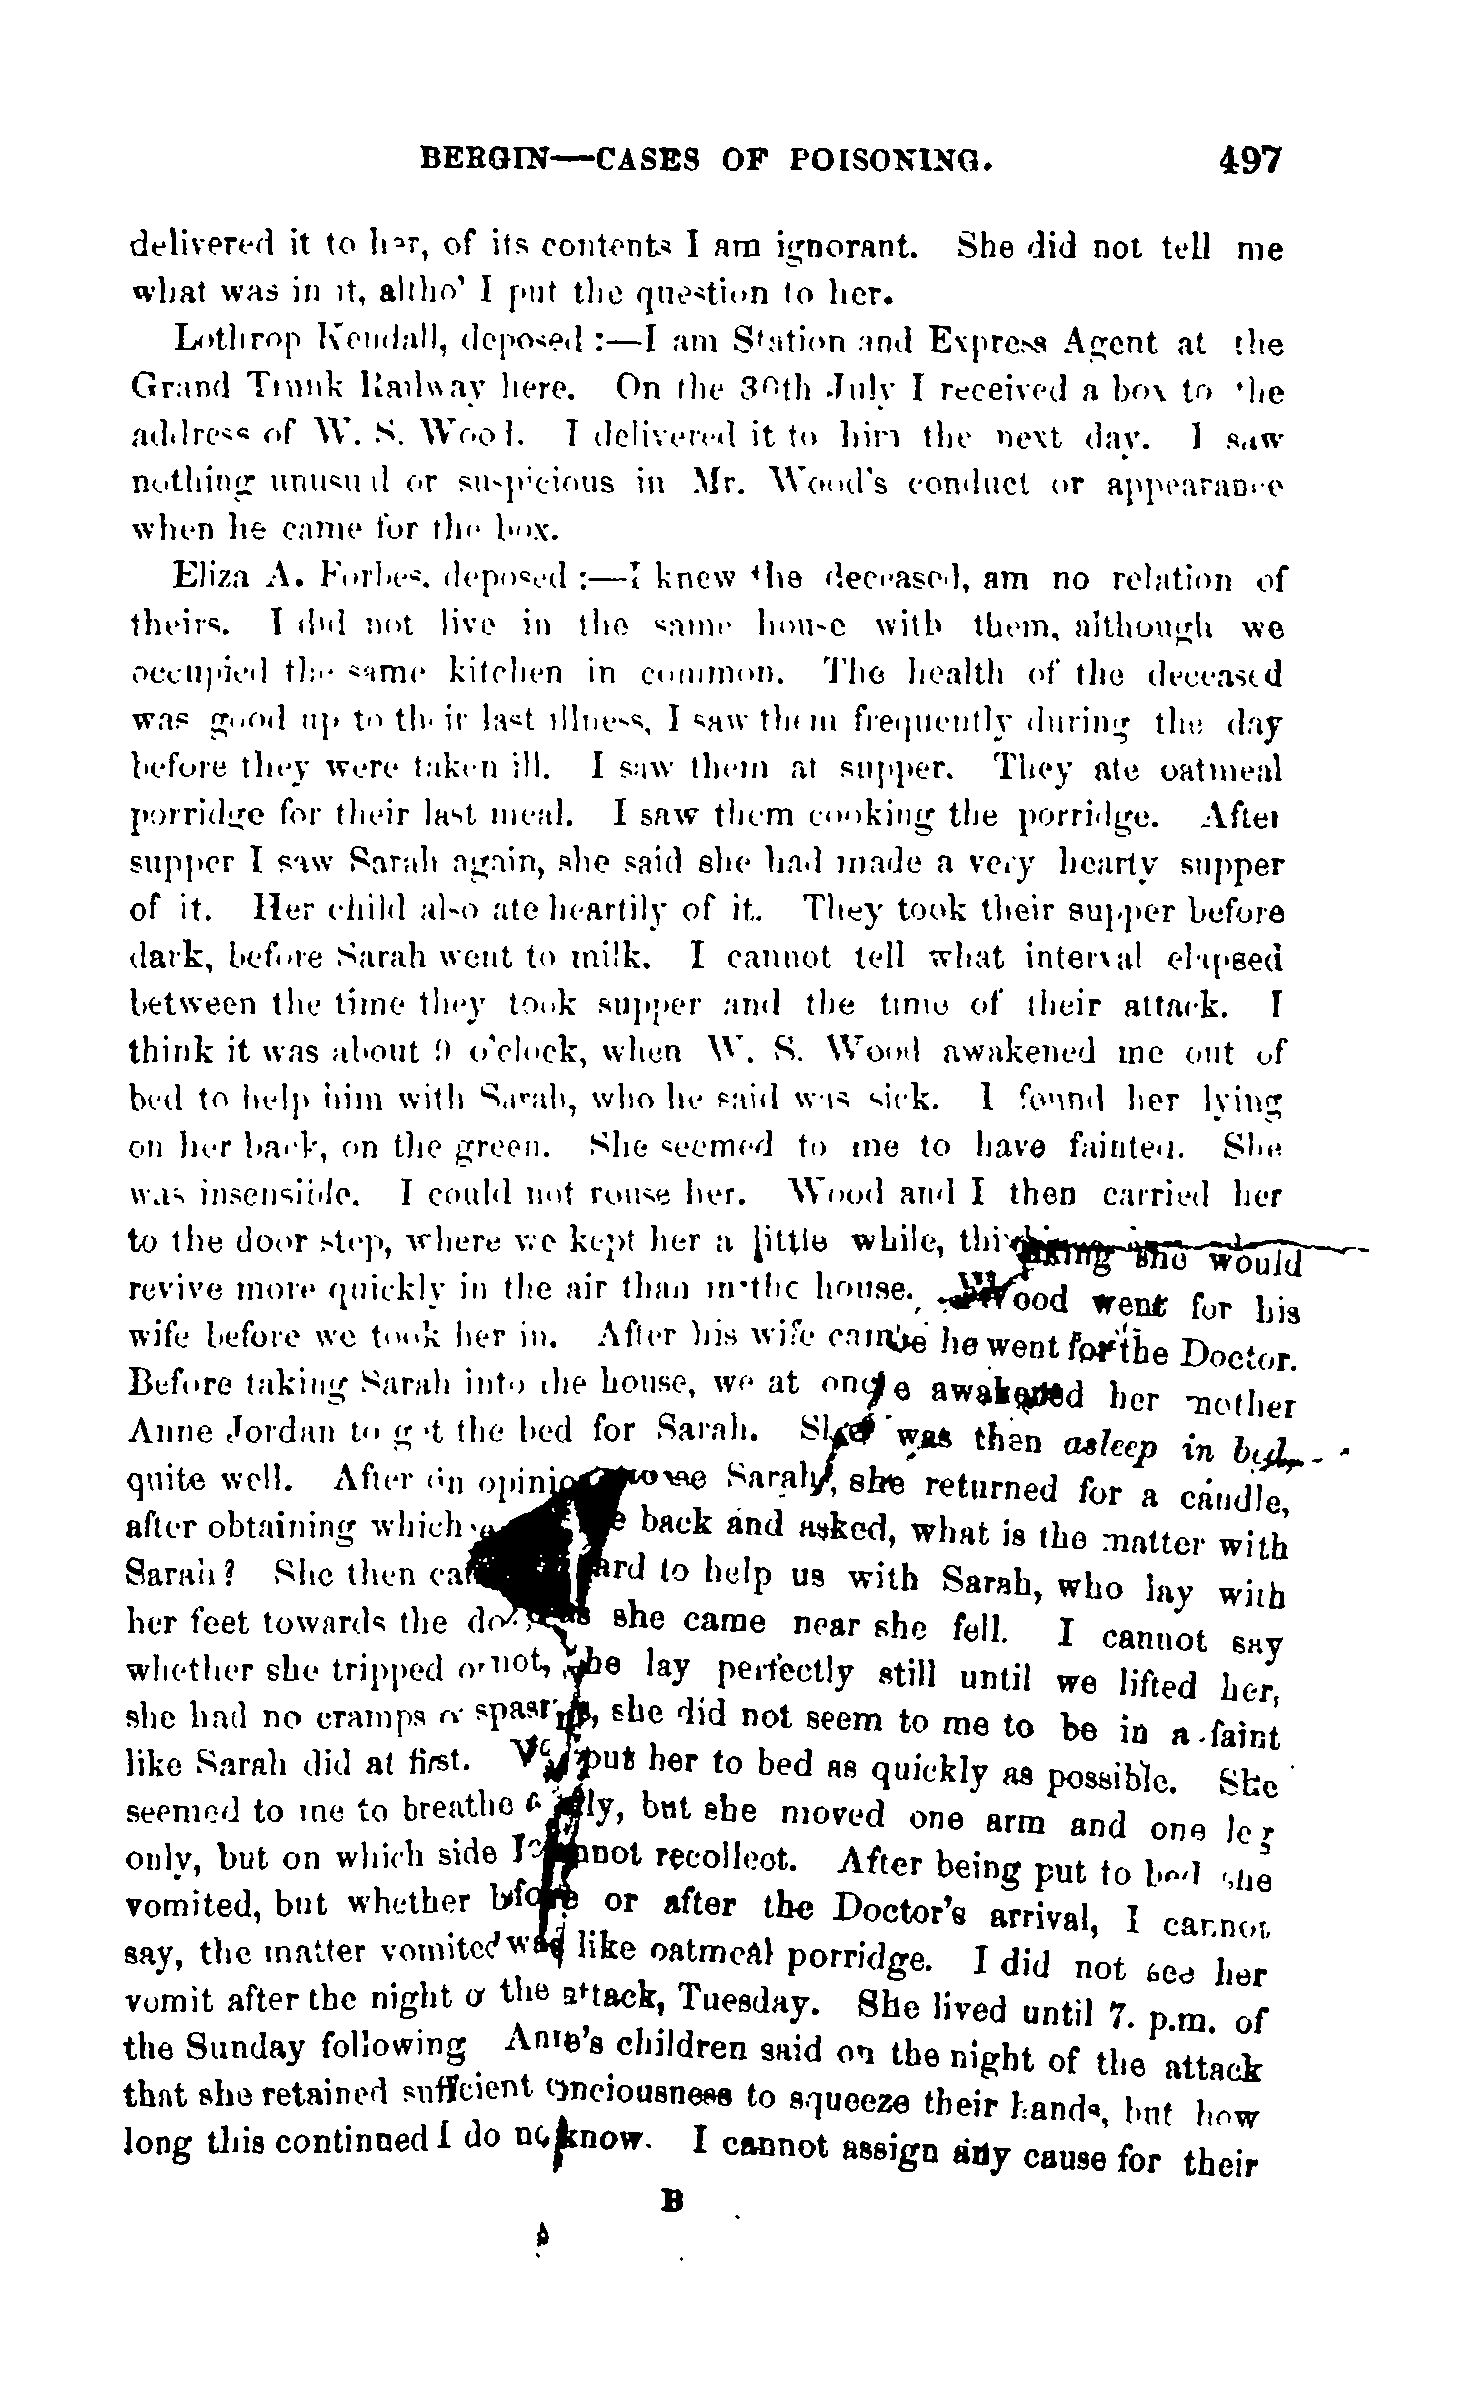 BERGIN—CASES OF POISONING. 497
delivered it to her, of its contents I am ignorant. She did not tell me
what was in it, altho' I put the question to her.
Lothrop Kendall, deposed :—I am Station and Express Agent at the
Grand Trunk Railway here. On the 30th July I received a box to the
address of W. S. Wood. I delivered it to him the next day. I saw
nothing unusual or suspicious in Mr. Wood's conduct or appearance
when he came for the box.
Eliza A. Forbes, deposed :—I knew the deceased, am no relation of
theirs. I did not live in the same house with them, although we
occupied the same kitchen in common. The health of the deceased
was good up to their last illness, I saw them frequently during the day
before they were taken ill. I saw them at supper. They ate oatmeal
porridge for their last meal. I saw them cooking the porridge. After
supper I saw Sarah again, she said she had made a very hearty supper
of it. Her child also ate heartily of it. They took their supper before
dark, before Sarah went to milk. I cannot tell what interval elapsed
between the time they took supper and the time of their attack. I
think it was about 9 o'clock, when W. S. Wood awakened me out of
bed to help him with Sarah, who he said was sick. I found her lying
on her back, on the green. She seemed to me to have fainted. She
was insensible. I could not rouse her. Wood and I then carried her
to the door step, where we kept her a little while, thinking she would
revive more quickly in the air than in the house. Wood went for his
wife before we took her in. After his wife came he went for the Doctor.
Before taking Sarah into the house, we at once awakened her mother
Anne Jordan to get the bed for Sarah. She was then asleep in bed,
quite well. After Sarah, she returned for a candle,
after obtaining which back and asked, what is the matter with
Sarah? She then to help us with Sarah, who lay with
her feet towards the she came near she fell. I cannot say
whether she tripped or not, she lay perfectly still until we lifted her,
she had no cramps or spasms, she did not seem to me to be in a faint
like Sarah did at first. We put her to bed as quickly as possible. She
seemed to me to breathe but she moved one arm and one leg
only, but on which side I cannot recollect. After being put to bed she
vomited, but whether before or after the Doctor's arrival, I cannot
say, the matter vomited was like oatmeal porridge. I did not see her
vomit after the night of the attack, Tuesday. She lived until 7. p.m. of
the Sunday following Anne's children said on the night of the attack
that she retained sufficient consciousness to squeeze their hands, but how
long this continued I do not know. I cannot assign any cause for their
B